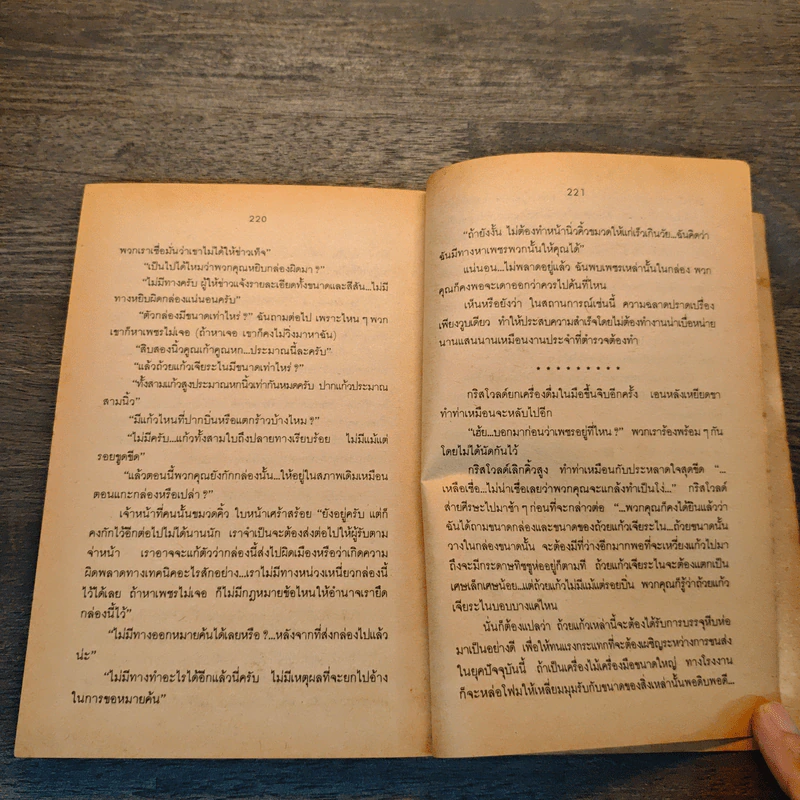 220
พวกเราเชื่อมั่นว่าเขาไม่ได้ให้ข่าวเท็จ”
“เป็นไปได้ไหมว่าพวกคุณหยิบกล่องผิดมา ?”
“ไม่มีทางครับ ผู้ให้ข่าวแจ้งรายละเอียดทั้งขนาดและสีสัน...ไม่มี
ทางหยิบผิดกล่องแน่นอนครับ”
“ตัวกล่องมีขนาดเท่าไหร่ ?” ฉันถามต่อไป เพราะไหน ๆ พวก
เขาก็หาเพชรไม่เจอ (ถ้าหาเจอ เขาก็คงไม่วิ่งมาหาฉัน)
“สิบสองนิ้วคูณเก้าคูณหก...ประมาณนี้ละครับ”
“แล้วถ้วยแก้วเจียระไนมีขนาดเท่าไหร่ ?”
“ทั้งสามแก้วสูงประมาณหกนิ้วเท่ากันหมดครับ ปากแก้วประมาณ
สามนิ้ว”
“มีแก้วไหนที่ปากบิ่นหรือแตกร้าวบ้างไหม ?”
“ไม่มีครับ...แก้วทั้งสามใบถึงปลายทางเรียบร้อย ไม่มีแม้แต่
รอยขูดขีด”
“แล้วตอนนี้พวกคุณยังกักกล่องนั้น...ให้อยู่ในสภาพเดิมเหมือน
ตอนแกะกล่องหรือเปล่า ?”
เจ้าหน้าที่คนนั้นขมวดคิ้ว ใบหน้าเศร้าสร้อย “ยังอยู่ครับ แต่ก็
คงกักไว้อีกต่อไปไม่ได้นานนัก เราจำเป็นจะต้องส่งต่อไปให้ผู้รับตาม
จ่าหน้า เราอาจจะแก้ตัวว่ากล่องนี้ส่งไปผิดเมืองหรือว่าเกิดความ
ผิดพลาดทางเทคนิคอะไรสักอย่าง...เราไม่มีทางหน่วงเหนี่ยวกล่องนี้
ไว้ได้เลย ถ้าหาเพชรไม่เจอ ก็ไม่มีกฎหมายข้อไหนให้อำนาจเรายึด
กล่องนี้ไว้”
“ไม่มีทางออกหมายค้นได้เลยหรือ ?...หลังจากที่ส่งกล่องไปแล้ว
น่ะ”
“ไม่มีทางทำอะไรได้อีกแล้วนี่ครับ ไม่มีเหตุผลที่จะยกไปอ้าง
ในการขอหมายค้น”
221
“ถ้ายังงั้น ไม่ต้องทำหน้านิ่วคิ้วขมวดให้แก่เร็วเกินวัย...ฉันคิดว่า
ฉันมีทางหาเพชรพวกนั้นให้คุณได้”
แน่นอน...ไม่พลาดอยู่แล้ว ฉันพบเพชรเหล่านั้นในกล่อง พวก
คุณก็คงพอจะเดาออกว่าควรไปค้นที่ไหน
เห็นหรือยังว่า ในสถานการณ์เช่นนี้ ความฉลาดปราดเปรื่อง
เพียงวูบเดียว ทำให้ประสบความสำเร็จโดยไม่ต้องทำงานน่าเบื่อหน่าย
นานแสนนานเหมือนงานประจำที่ตำรวจต้องทำ
• • • • • • • • •
กริสโวลด์ยกเครื่องดื่มในมือขึ้นจิบอีกครั้ง เอนหลังเหยียดขา
ทำท่าเหมือนจะหลับไปอีก
“เฮ้ย...บอกมาก่อนว่าเพชรอยู่ที่ไหน ?” พวกเราร้องพร้อม ๆ กัน
โดยไม่ได้นัดกันไว้
กริสโวลด์เลิกคิ้วสูง ทำท่าเหมือนกับประหลาดใจสุดขีด “...
เหลือเชื่อ...ไม่น่าเชื่อเลยว่าพวกคุณจะแกล้งทำเป็นโง่...” กริสโวลด์
ส่ายศีรษะไปมาช้า ๆ ก่อนที่จะกล่าวต่อ “...พวกคุณก็คงได้ยินแล้วว่า
ฉันได้ถามขนาดกล่องและขนาดของถ้วยแก้วเจียระไน...ถ้วยขนาดนั้น
วางในกล่องขนาดนั้น จะต้องมีที่ว่างอีกมากพอที่จะเหวี่ยงแก้วไปมา
ถึงจะมีกระดาษทิชชูห่ออยู่ก็ตามที ถ้วยแก้วเจียระไนก็จะต้องแตกเป็น
เศษเล็กเศษน้อย...แต่ถ้วยแก้วไม่มีแม้แต่รอยบิ่น พวกคุณก็รู้ว่าถ้วยแก้ว
เจียระไนบอบบางแค่ไหน
นั่นก็ต้องแปลว่า ถ้วยแก้วเหล่านี้จะต้องได้รับการบรรจุหีบห่อ
มาเป็นอย่างดี เพื่อให้ทนแรงกระแทกที่จะต้องเผชิญระหว่างการขนส่ง
ในยุคปัจจุบันนี้ ถ้าเป็นเครื่องไม้เครื่องมือขนาดใหญ่ ทางโรงงาน
ก็จะหล่อโฟมให้เหลี่ยมมุมรับกับขนาดของสิ่งเหล่านั้นพอดิบพอดี...